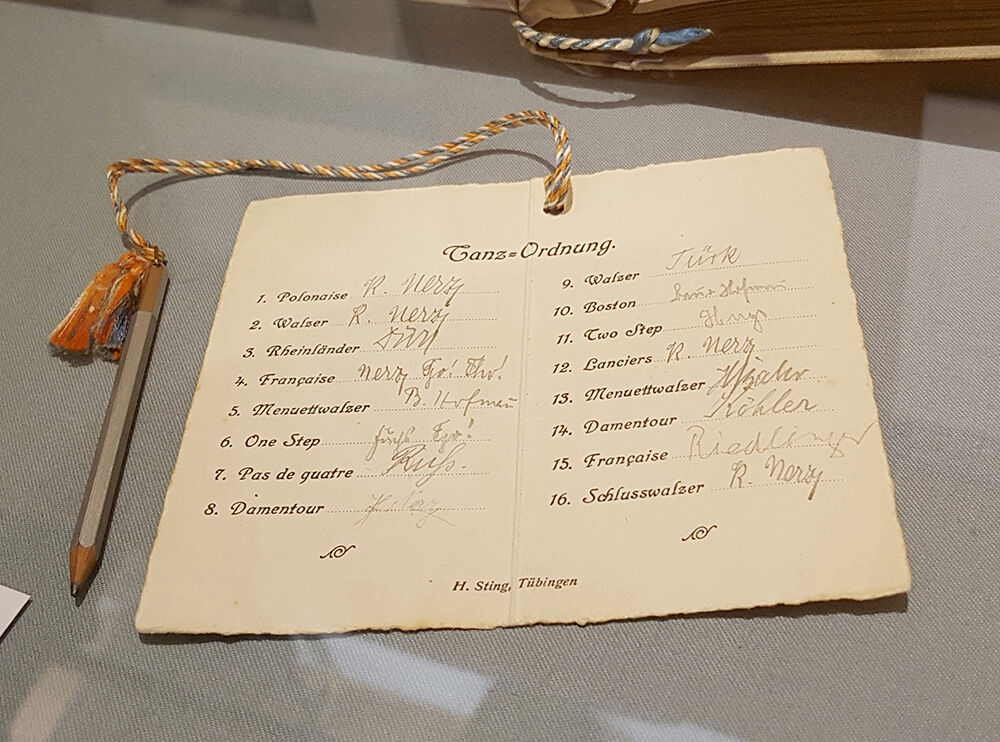 Tanz=Ordnung.
1. Polonaise R. Nerz
2. Walzer R. Nerz
3. Rheinländer Türk
4. Française Nerz
5. Menuettwalzer B. Hofmann
6. One Step Fuchs
7. Pas de quatre Russ.
8. Damentour Nerz
9. Walzer Türk
10. Boston
11. Two Step
12. Lanciers R. Nerz
13. Menuettwalzer
14. Damentour Köhler
15. Française Riedlinger
16. Schlusswalzer R. Nerz
H. Sting, Tübingen